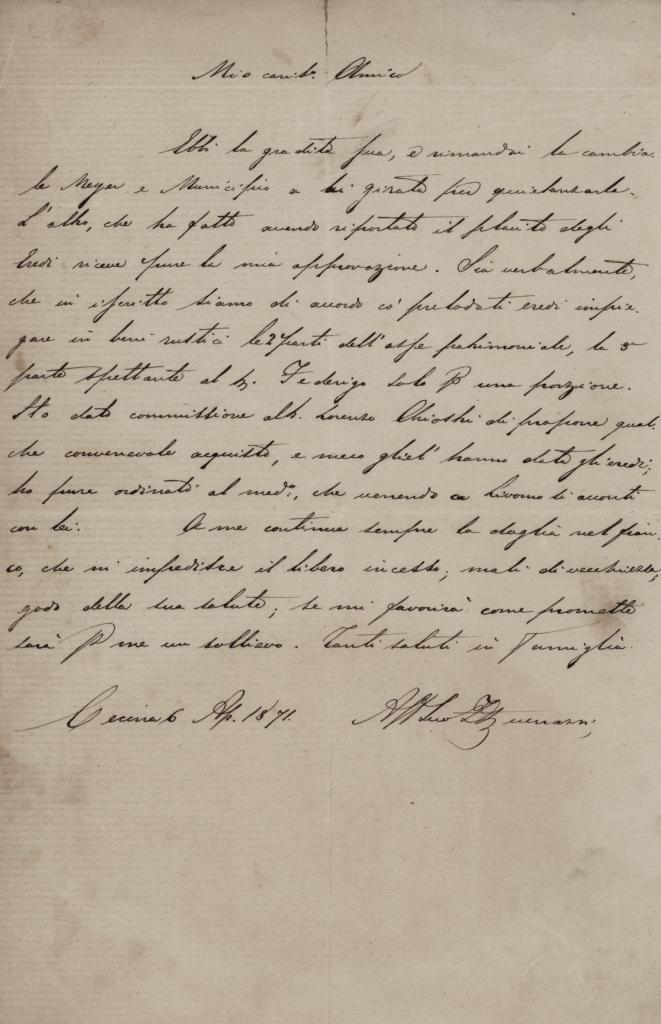 Mio carit.o Amico
Ebbi la gradita sua, e rimandai la cambia.
le Meyer e Municipio a lei girata per quietanzarla.
L'altro, che ha fatto avendo riportato il plauso degli
Eredi riceve pure la mia approvazione. Sia verbalmente,
che in iscritto siamo di accordo co' prelodati eredi impie.
gare in beni rustici le 2 parti dell'asse patrimoniale, la 3a
parte spettante al S. Federigo solo P una porzione.
Ho dato commissione al S. Lorenzo Chiostri di propone qual.
che convenevole acquisto, e meco gliel' hanno data gli eredi;
ho pure ordinato al med.o, che venendo a Livorno si acconti
con lei. A me continua sempre la doglia nel fian.
co, che mi impedisce il libero incesso; mali di vecchiezza;
godo della sua salute; se mi favorirà come promette
sarà P me un sollievo. Tanti saluti in Famiglia.
Cecina 6 Ap. 1871. Aff Suo